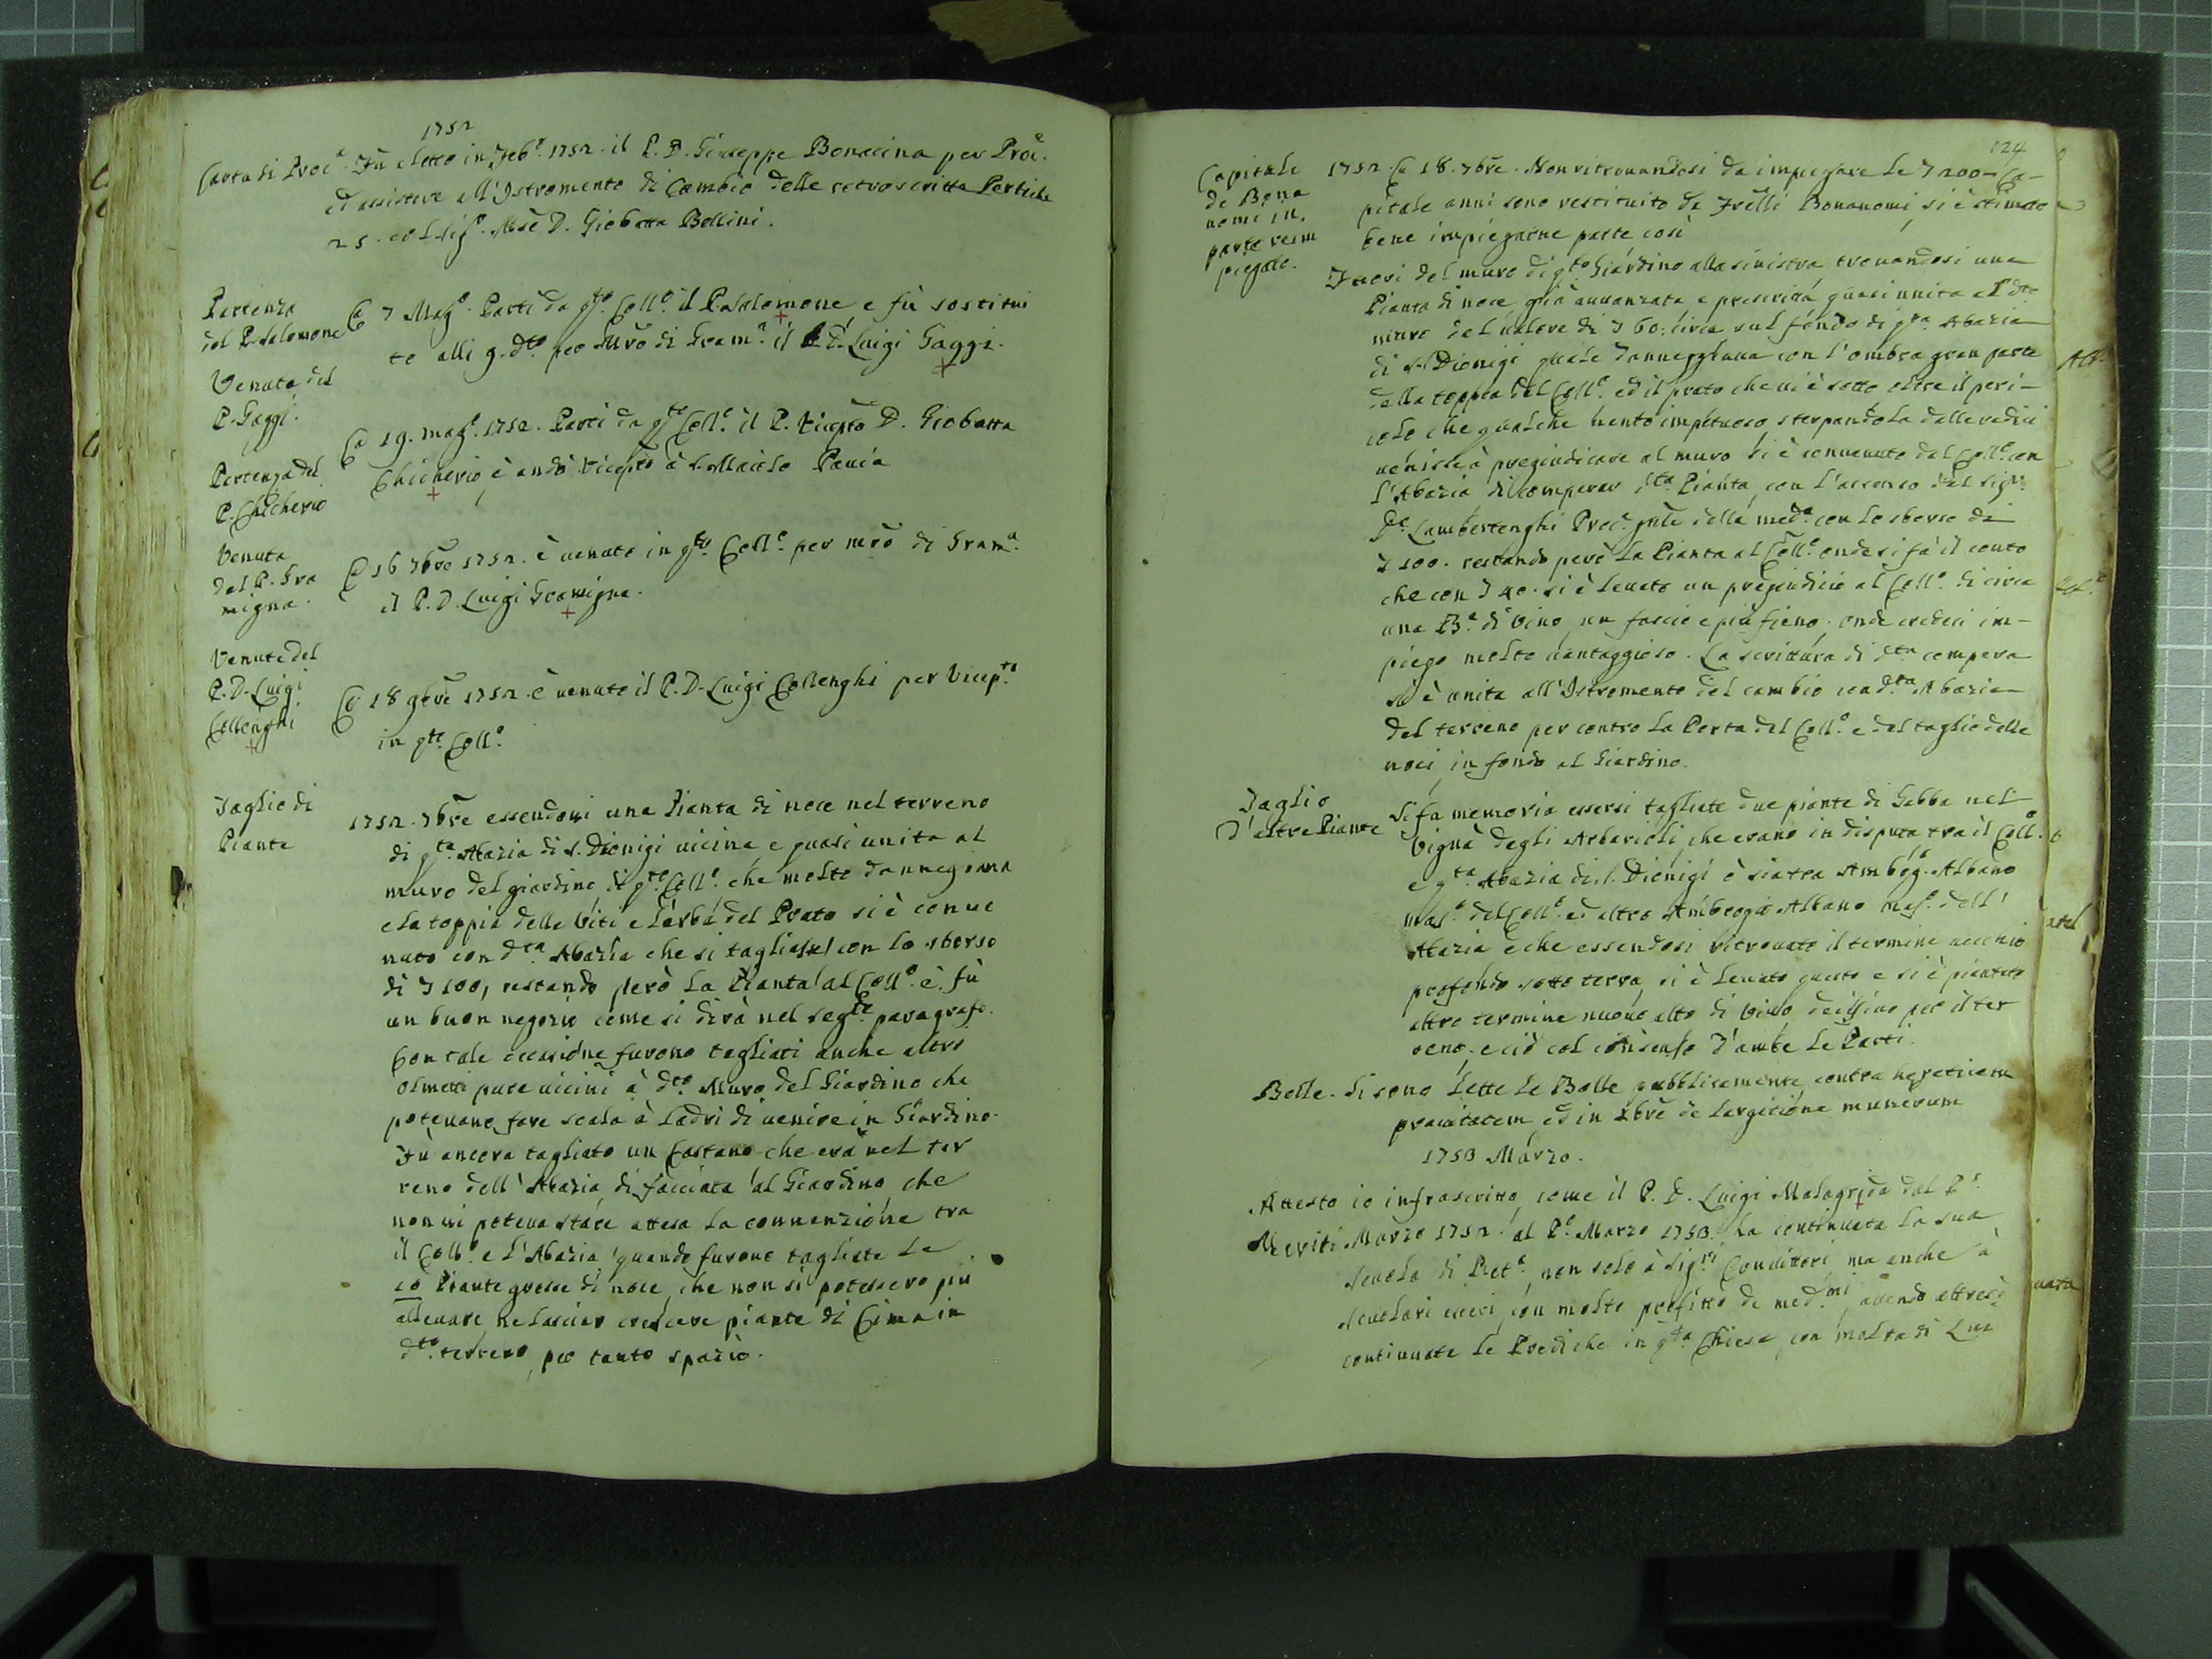 1752
Carta di Proc.ª Fù eletto in Feb.º 1752. il P. D. Giuseppe Bonacina per Proc.
ed assistere all'Istromento di Cambio delle retroscritte Pertiche
25. col Sig.r Mse D. Giobatta Bellini.
Partenza
del P. Salomone
A 7 Mag.º Partì da q.to Coll.º il P. Salomone, e fù sostitui
to alli 9. d.to per Mrõ di Gram.ª il P. D. Luigi Gaggi.
Venuta del
P. Gaggi.
A 19. mag.º 1752. Partì da q.to Coll.º il P. Vicepto D. Giobatta
Chicherio, è andò Vicepto à S. Maiolo Pavia
Partenza del
P. Chicherio
Venuta
del P. Gra
migna.
A 16 7bre 1752. è venuto in q.to Coll.º per mrõ di Gram.ª
il P. D. Luigi Gramigna.
Venuta del
P. D. Luigi
Collenghi
A 18 9bre 1752. è venuto il P. D. Luigi Collenghi per Vicep.to
in q.to Coll.º
Taglio di
Piante
1752. 7bre essendovi una Pianta di noce nel terreno
di q.ta Abazia di S. Dionigi vicina e quasi unita al
muro del giardino di q.to Coll.º che molto dannegiava
e la toppia delle Viti e l'erba del Prato si è conve
nuto con d.ta Abazia che si tagliasse con lo sborso
di 100, restando però la Pianta al Coll.º e fù
un buon negozio come si dirà nel seg.te paragrafo.
Con tale occasione furono tagliati anche altri
olmetti pure vicini à d.to Muro del Giardino che
potevano fare scala à Ladri di venire in Giardino.
Fù ancora tagliato un Castano che era nel ter
reno dell'Abazia di facciata al Giardino, che
non vi poteva stare attesa la convenzione tra
il Coll.º e l'Abazia quando furono tagliate le
10 Piante grosse di noce, che non si potessero più
allevare ne lasciar crescere piante di Cima in
d.to terreno, per tanto spazio.
124
Capitale
de Bona
nomi in
parte reim
piegato.
1752. A 18. 7bre. Non ritrovandosi da impiegare le 200 - Ca-
pitale anni sono restituito da Frelli Bonanomi, si è stimato
bene impiegarne parte così
Fuori del muro di q.to Giardino alla sinistra trovandosi una
Pianta di noce già avvanzata e quasi unita al d.to
muro del valore di 60: circa sul fondo di q.ta Abazia
di S. Dionigi quale danneggiava con l'ombra gran parte
della toppia del Coll.º ed il prato che vi è sotto oltre il peri-
colo che qualche vento impetuoso sterpandola dalle radici
venisse à pregiudicare al muro si è convenuto dal Coll.º con
l'Abazia di comperar d.ta Pianta, con l'assenso del Sig.r
Lambertenghi Proc.e gñle della med.ª con lo sborso di
100. restando però la Pianta al Coll.º onde si fà il conto
che con 40. si è levato un pregiudicio al Coll.º di circa
una B.ª di Vino, un fascio e più fieno, onde credesi im-
piego molto vantaggioso. La scrittura di d.ta compera
si è unita all'Istromento del cambio con d.ta Abazia
del terreno per contro la Porta del Coll.º e del taglio delle
noci in fondo al Giardino.
Taglio
d'altre Piante
Si fa memoria essersi tagliate due piante di Gabba nel
Vigna degli Arbarioli che erano in disputa tra il Coll.º
e q.ta Abazia di S. Dionigi ò sia tra Ambög. Albano
mas.º del Coll.º ed altro Ambrogio Albano mas.º dell'
Abazia e che essendosi ritrovato il termine vecchio
profondo sotto terra, si è levato questo e si è piantato
altro termine nuovo alto di vivo per il ter
reno, e ciò col consenso d'ambe le Parti.
Bolle. Si sono lette le Bolle pubblicamente contra hereticam
pravitatem ed in Xbre de largitione munerum
1753 Marzo.
Attesto io infrascritto, come il P. D. Luigi Malagrida dal P.º
Meriti Marzo 1752. al P.º Marzo 1753. ha continuata la sua
scuola di Ret.ª non solo à Sig.ri Convittori ma anche à
scuolari esteri, con molto profitto de med.mi, avendo altresì
continuate le Prediche in q.ta Chiesa, con molta di Lui